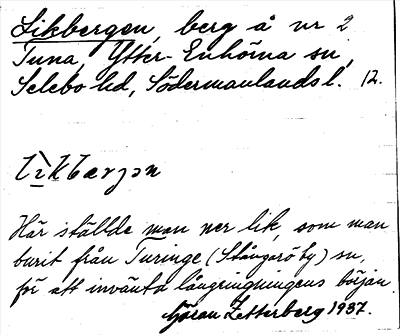 Likbergen, berg å nr 2
Tuna, Ytter-Enhörna sn,
Selebo hd, Södermanlands l. 12.
Här ställde man ner lik, som man
burit från Turinge (Stångarö by) sn,
för att invänta långringningens början
Göran Zetterberg 1937.